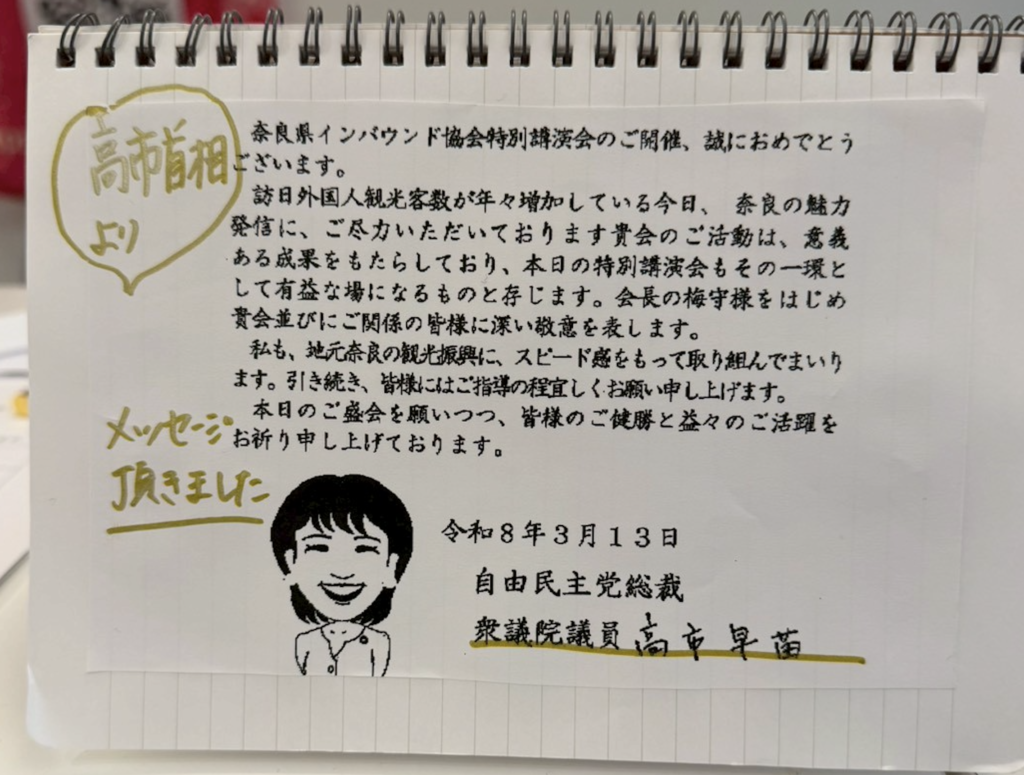 高市首相
より
奈良県インバウンド協会特別講演会のご開催、誠におめでとう
ございます。
訪日外国人観光客数が年々増加している今日、 奈良の魅力
発信に、ご尽力いただいております貴会のご活動は、意義
ある成果をもたらしており、本日の特別講演会もその一環と
して有益な場になるものと存じます。会長の梅守様をはじめ
貴会並びにご関係の皆様に深い敬意を表します。
私も、地元奈良の観光振興に、スピード感をもって取り組んでまいり
ます。引き続き、皆様にはご指導の程宜しくお願い申し上げます。
本日のご盛会を願いつつ、皆様のご健勝と益々のご活躍を
お祈り申し上げております。
メッセージ
頂きました
令和8年3月13日
自由民主党総裁
衆議院議員 高市早苗